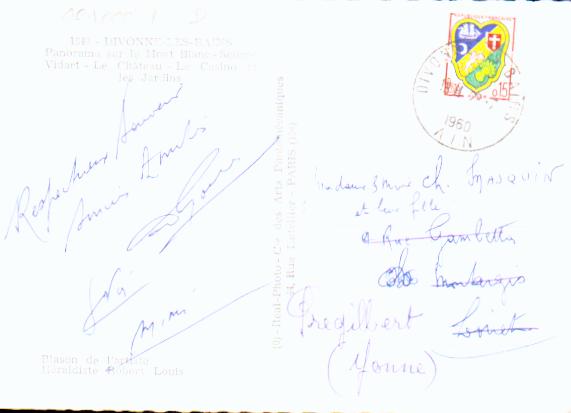 1249 - DIVONNE-LES-BAINS
Panorama sur le Mont Blanc - Source
Vidart - Le Château - Le Casino et
les Jardins
Respectueux Souvenir
Amicales Amitiés
Mimi
Blason de l'artiste
Héraldiste Robert Louis
Real-Photo - Cie des Arts Photomécaniques
44, Rue Letellier - PARIS (15e)
0,15
DIVONNE-LES-BAINS
1960
AIN
Ch. MASQUIN
et leur fille
Rue Gambetta
Montargis
Loiret
Pregilbert
(Yonne)